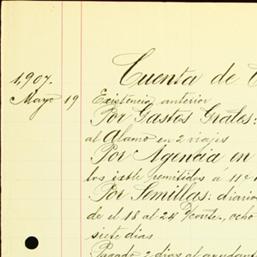 1,907. Cuenta de
Mayo 19 Existencia anterior
Por Gastos Grales:
al Alamo en 2 viajes
Por Agencia en
los remitidos a 11
Por Semillas: diario
de el 18 al 24 Dcorte, ocho
siete dias
Pagado 2 dias al ayudante